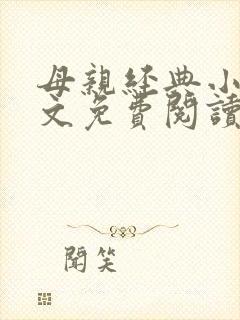 母親經典小
文免費閱讀
聞笑